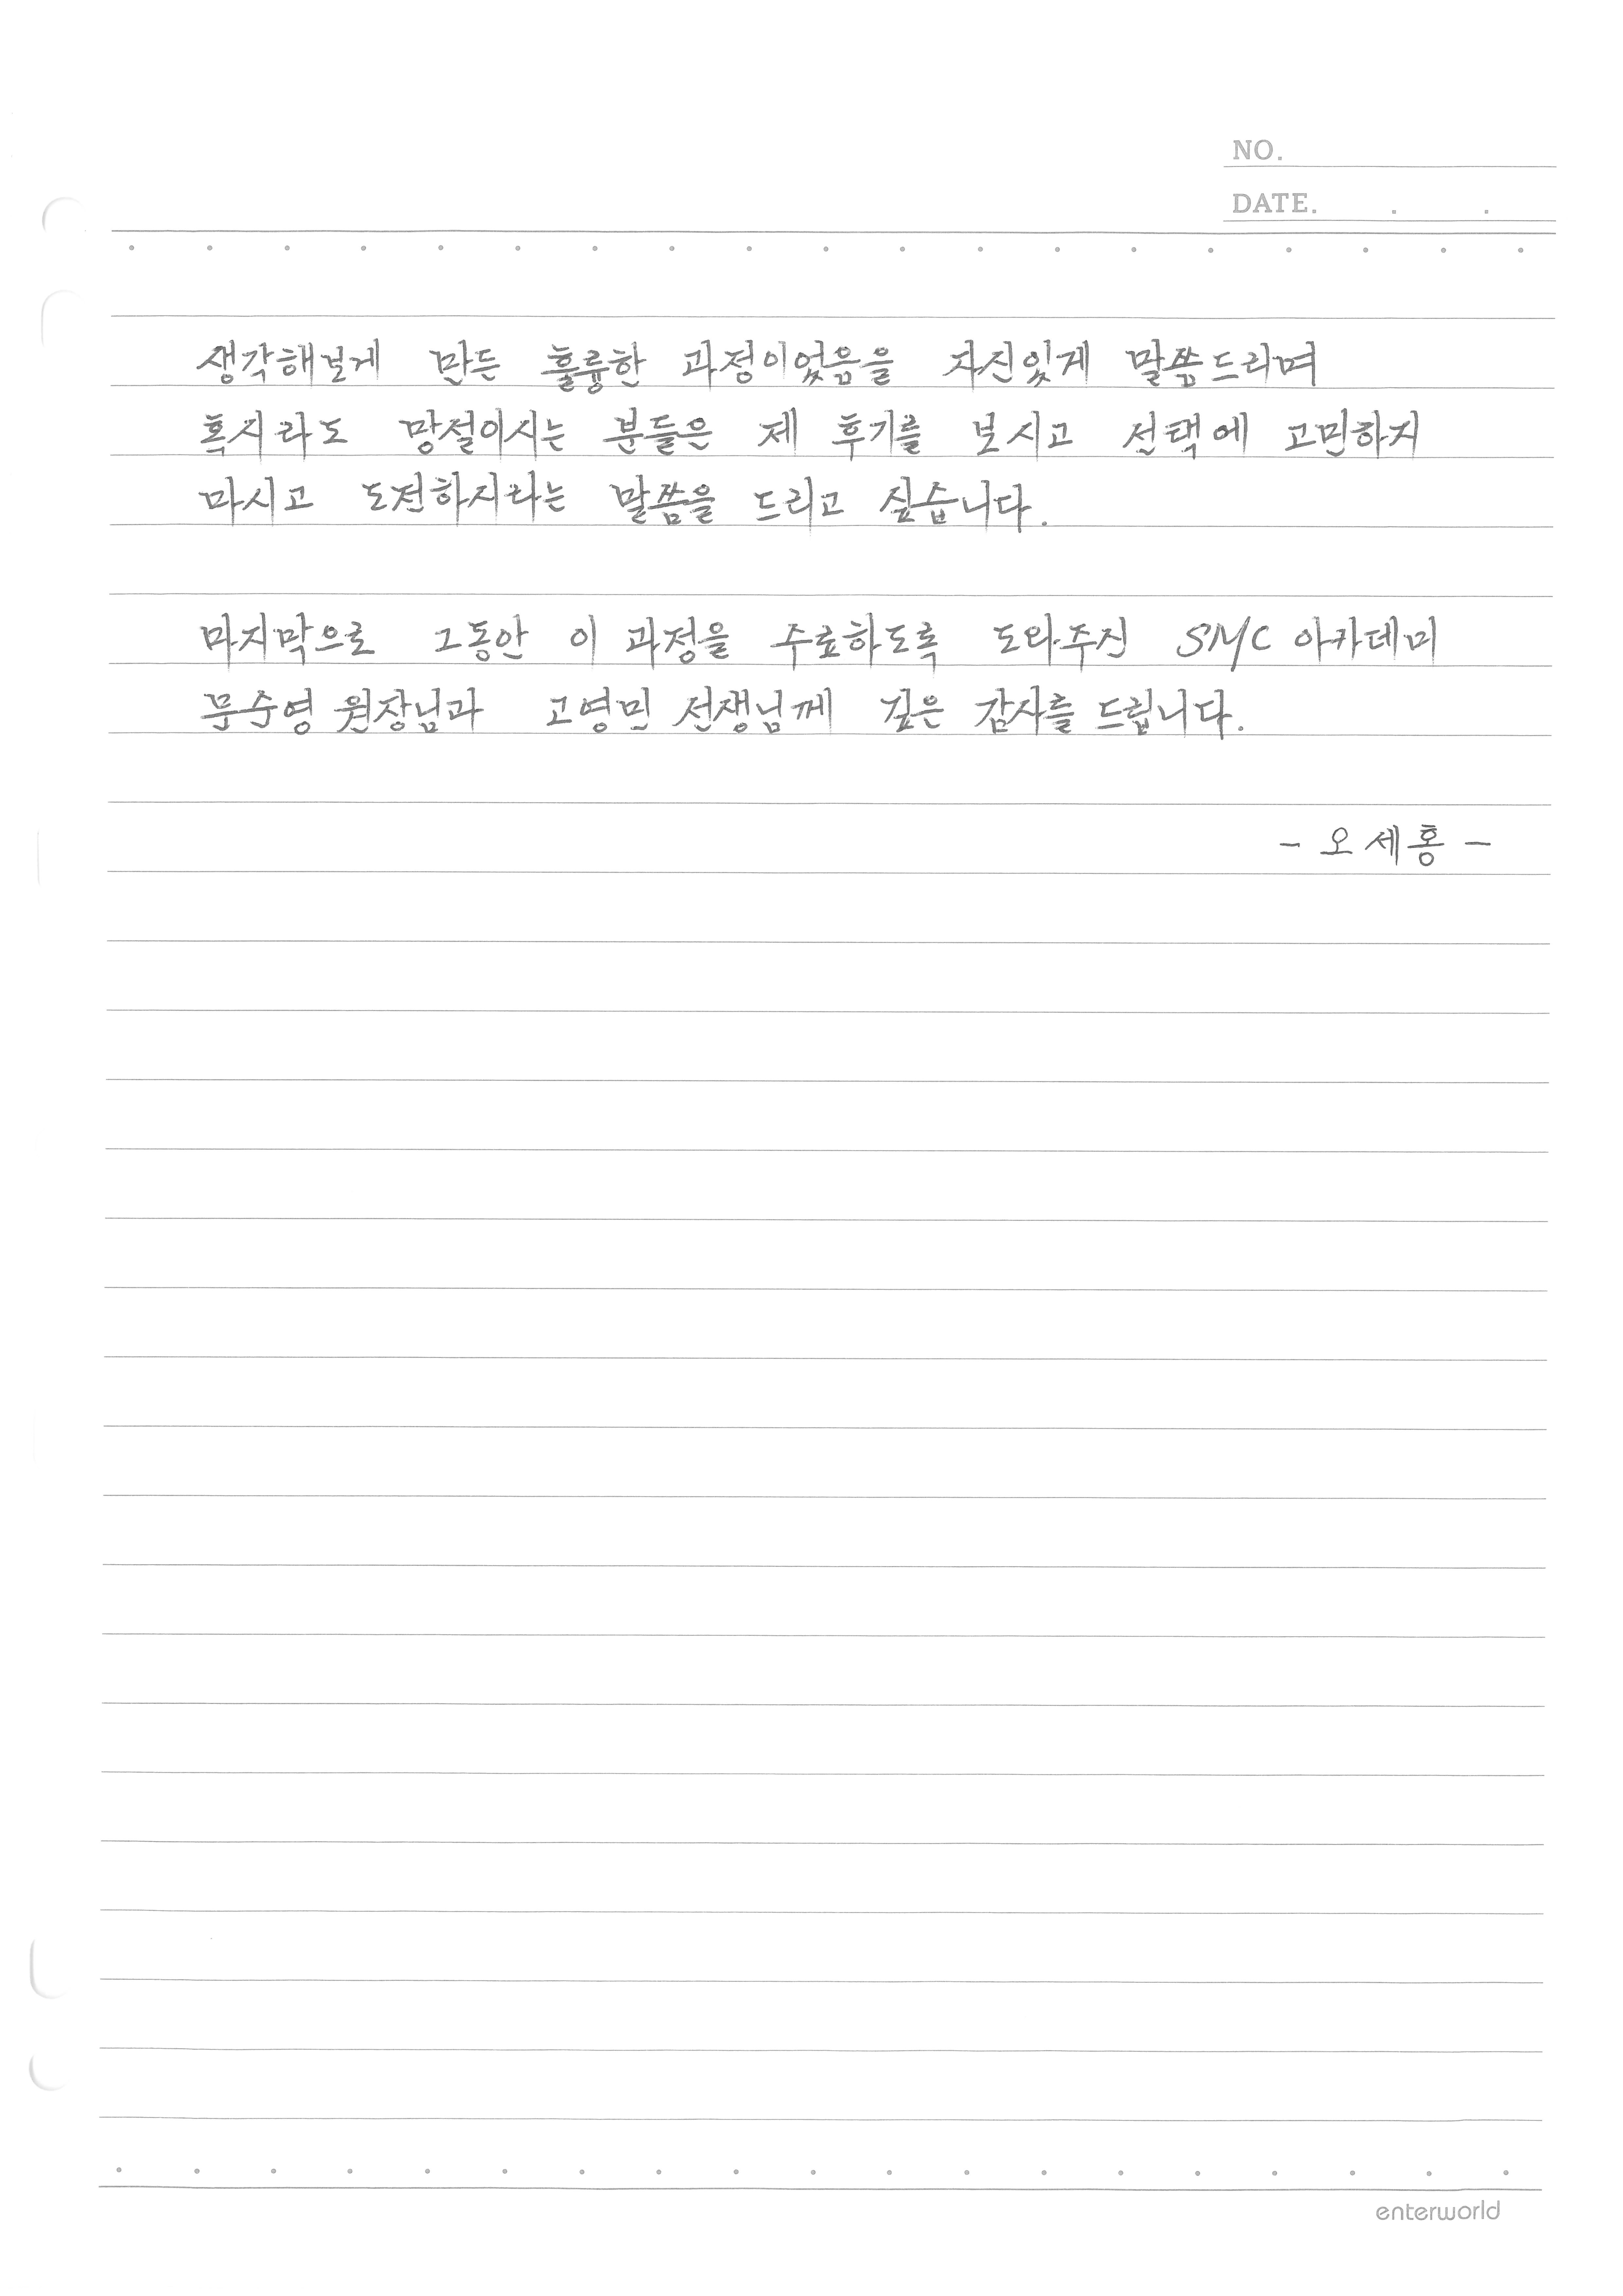 NO.
DATE. . .
생각해보게 만든 훌륭한 과정이었음을 자신있게 말씀드리며
혹시라도 망설이시는 분들은 제 후기를 보시고 선택에 고민하지
마시고 도전하시라는 말씀을 드리고 싶습니다.
마지막으로 그동안 이 과정을 수료하도록 도와주신 SMC 아카데미
문수영 원장님과 고영민 선생님께 깊은 감사를 드립니다.
- 오세홍 -
enterworld